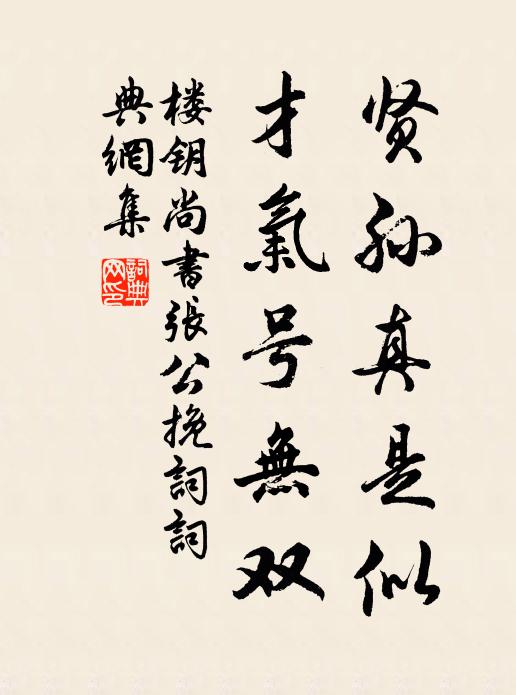 贤孙真是似
才氣号無双
楼钥尚書張公挽詞詞
典網集
詞典
网印